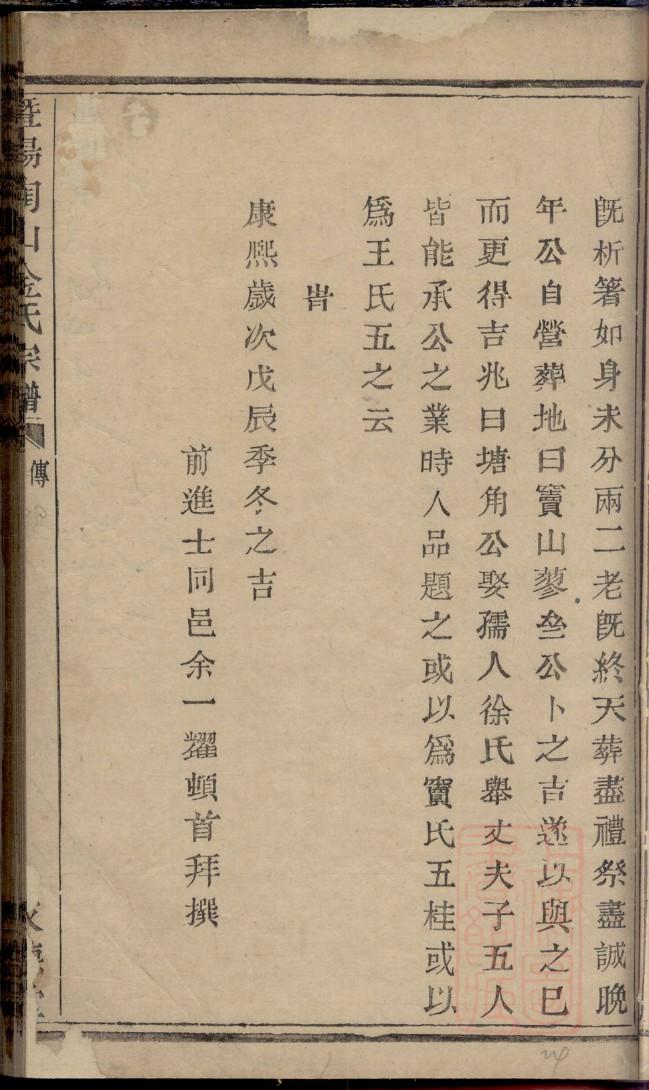 既析箸如身未分兩二老既終天葬盡禮祭盡誠晚
年公自營葬地曰寶山蓼壘公卜之吉遂以與之巳
而更得吉兆曰塘角公娶孺人徐氏舉丈夫子五人
皆能承公之業時人品題之或以爲竇氏五桂或以
爲王氏五之云
旹
康熙歲次戊辰季冬之吉
前進士同邑余一耀頓首拜撰
暨陽陶山金氏宗譜
傳